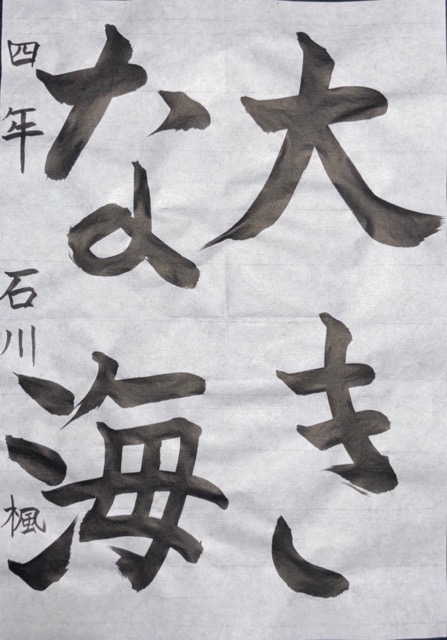 大き
な海
四年 石川 楓